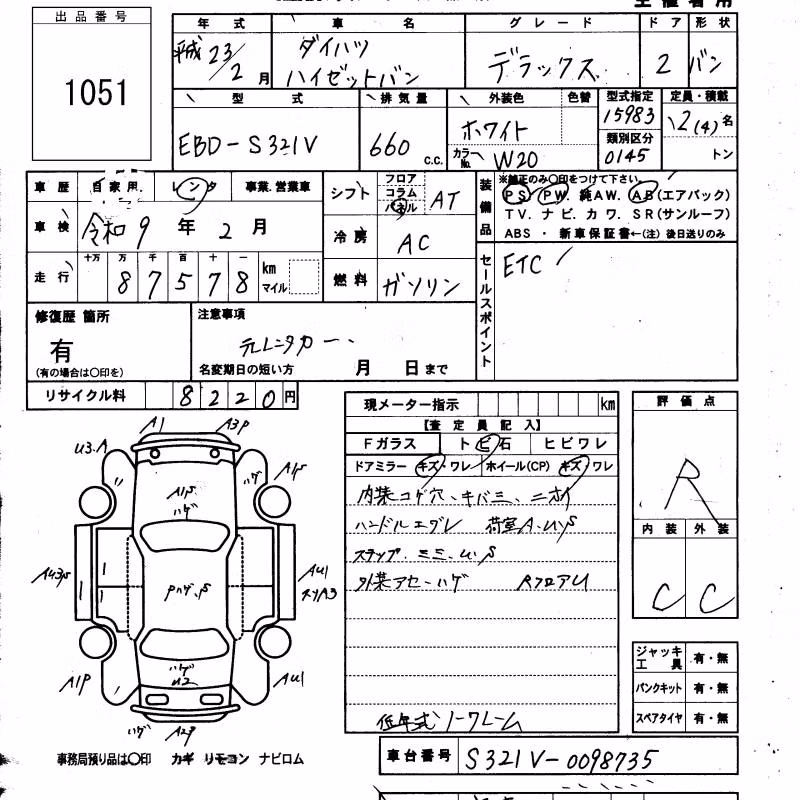 出品番号
1051
年式 車名 グレード ドア 形状
平成 23/2月 ダイハツ ハイゼットバン デラックス 2 バン
型式 排気量 外装色 色替 型式指定 定員・積載
EBD-S321V 660 c.c. ホワイト 15983 2(4)名
カラーNo. W20 類別区分 0145 トン
車歴 自家用 レンタ 事業.営業車
車検 令和 9年 2月
走行 十万 万 千 百 十 一
87578 km マイル
シフト フロア コラム パネル AT
冷房 AC
燃料 ガソリン
装備品 ※純正のみ〇印をつけて下さい。
PS PW. 純AW. AB(エアバック)
TV. ナビ. カワ. SR(サンルーフ)
ABS ・ 新車保証書←(注)後日送りのみ
セールスポイント
ETC
修復歴 箇所
有
(有の場合は〇印を)
注意事項
元レンタカー
名変期日の短い方 月 日まで
リサイクル料 8220円
現メーター指示 km
【査定員記入】
Fガラス トビ石 ヒビワレ
ドアミラー キズ・ワレ ホイール(CP) キズ・ワレ
内装コゲ穴、キバミ、ニオイ
ハンドルエグレ 荷室A.U.S
ステップ.ミミ.U.S
外装アセーハゲ RフロアU
低年式ノークレーム
評価点
R
内装 外装
C C
ジャッキ工具 有・無
パンクキット 有・無
スペアタイヤ 有・無
A1 A3P
U3.A ハゲ A1S
A1S
ハゲ
A43S AU1
PハゲS
A1P ハゲ AU1
U2
ハゲ A2P
事務局預り品は〇印 カギ リモコン ナビロム
車台番号 S321V-0098735